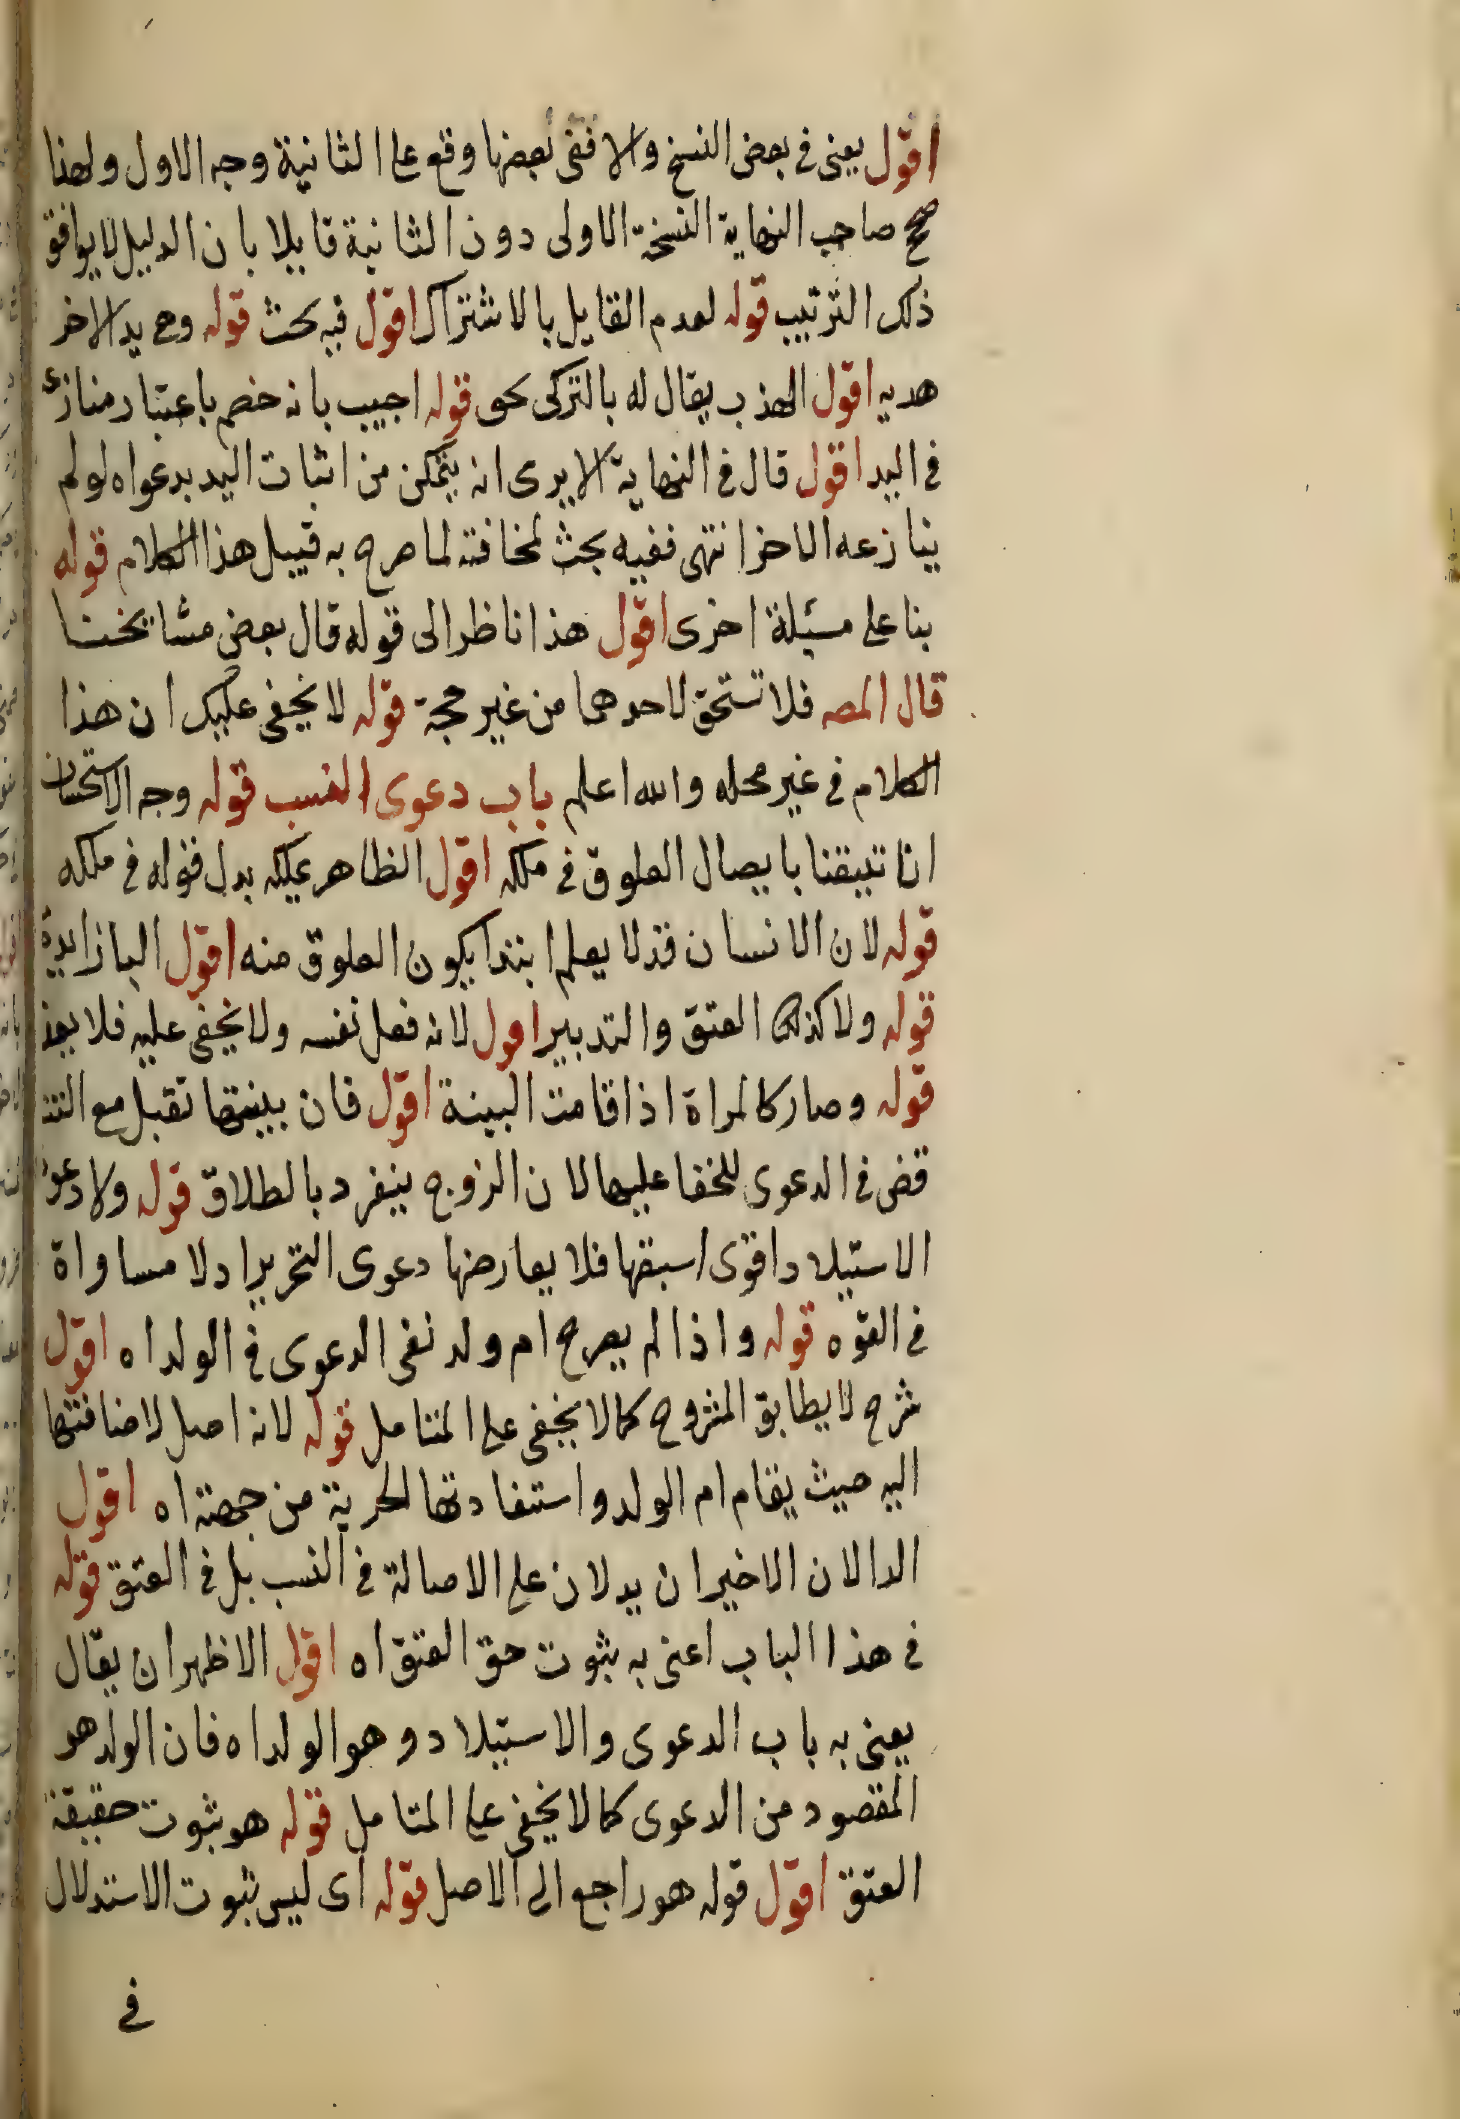 اقول يعنى فى بعض النسخ والا ففى بعضها وقع على الثانية وجه الاول ولهذا
صحح صاحب النهاية النسخة الاولى دون الثانية قايلا بان الدليل لا يوافق
ذلك الترتيب قوله لعدم القايل بالاشتراك اقول فيه بحث قوله وفى يد الاخر
هدبه اقول الهدب يقال له بالتركى قوله اجيب بانه خصم باعتبار منازع
فى اليد اقول قال فى النهاية الا يرى انه يتمكن من اثبات اليد بدعواه لو لم
ينازعه الاخر انتهى ففيه بحث لمخافته لما صرح به قبيل هذا الكلام قوله
بنا على مسئلة اخرى اقول هذا ناظر الى قوله قال بعض مشايخنا
قال المصه فلا تستحق لاحدهما من غير حجة قوله لا يخفى عليك ان هذا
الكلام فى غير محله والله اعلم باب دعوى النسب قوله وجه الاستحسان
انا تيقنا بايصال العلوق فى ملكه اقول الظاهر عليكه بدل قوله فى ملكه
قوله لان الانسان قد لا يعلم ابتدا بكون العلوق منه اقول البا زايدة
قوله ولا كذلك العتق والتدبير اقول لانه فعل نفسه ولا يخفى عليه فلا يعذ
قوله وصار كالمراة اذا قامت البينة اقول فان بينتها تقبل مع التنا
قض فى الدعوى للخفا عليها لان الزوج ينفرد بالطلاق قوله ولا دعو
الاستيلاد اقوى اسبقها فلا يعارضها دعوى التحرير اد لا مساواة
فى القوه قوله واذا لم يصرح ام ولد نفى الدعوى فى الولد اه اقول
شرح لا يطابق المشروح كما لا يخفى على المتامل قوله لانه اصل لاضافتها
اليه حيث يقام ام الولد واستفادتها الحرية من جهته اه اقول
الدالان الاخيران يدلان على الاصالة فى النسب بل فى العتق قوله
فى هذا الباب اعنى به ثبوت حق العتق اه اقول الاظهر ان يقال
يعنى به باب الدعوى والاستيلاد وهو الولد اه فان الولد هو
المقصود من الدعوى كما لا يخفى على المتامل قوله هو ثبوت حقيقة
العتق اقول قوله هو راجع الى الاصل قوله اى ليس ثبوت الاستدلال
فى